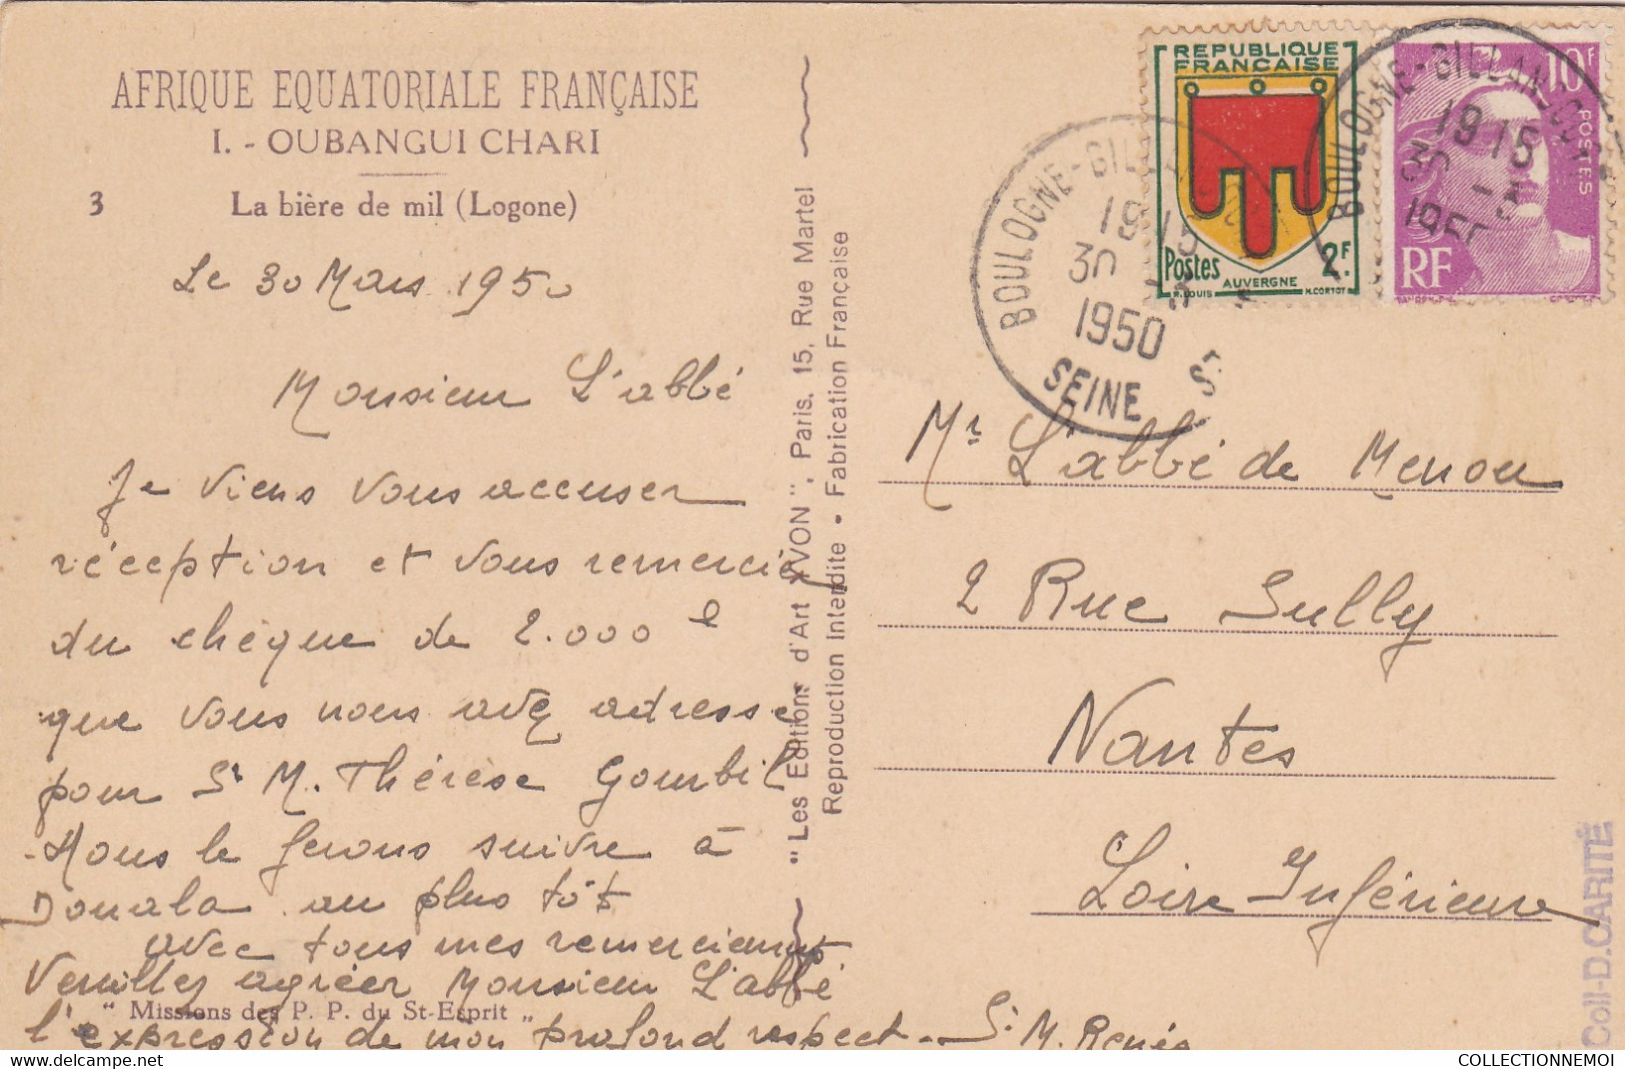 AFRIQUE EQUATORIALE FRANÇAISE
I. - OUBANGUI CHARI
3 La bière de mil (Logone)
Le 30 Mars 1950
Monsieur L'abbé
Je viens vous accuser
réception et vous remercier
du chèque de 2.000
que vous nous avez adressé
pour Sr M. Thérèse Gombil
Nous le ferons suivre à
Douala au plus tôt
avec tous mes remerciements
Veuillez agréer Monsieur L'abbé
l'expression de mon profond respect - Sr M. Renée
" Missions des P. P. du St-Esprit "
" Les Editions d'Art YVON ", Paris, 15, Rue Martel
Reproduction Interdite • Fabrication Française
REPUBLIQUE
FRANCAISE
Postes 2F.
AUVERGNE
R. LOUIS H. CORTOT
10F
POSTES
RF
BOULOGNE-BILLANCOURT
19 15
30 -3
1950
SEINE
BOULOGNE-BILLANCOURT
19 15
30 -3
1950
Mr L'abbé de Menou
2 Rue Sully
Nantes
Loire Inférieure
Coll-D.CARITÉ
delcampe.net
COLLECTIONNEMOI